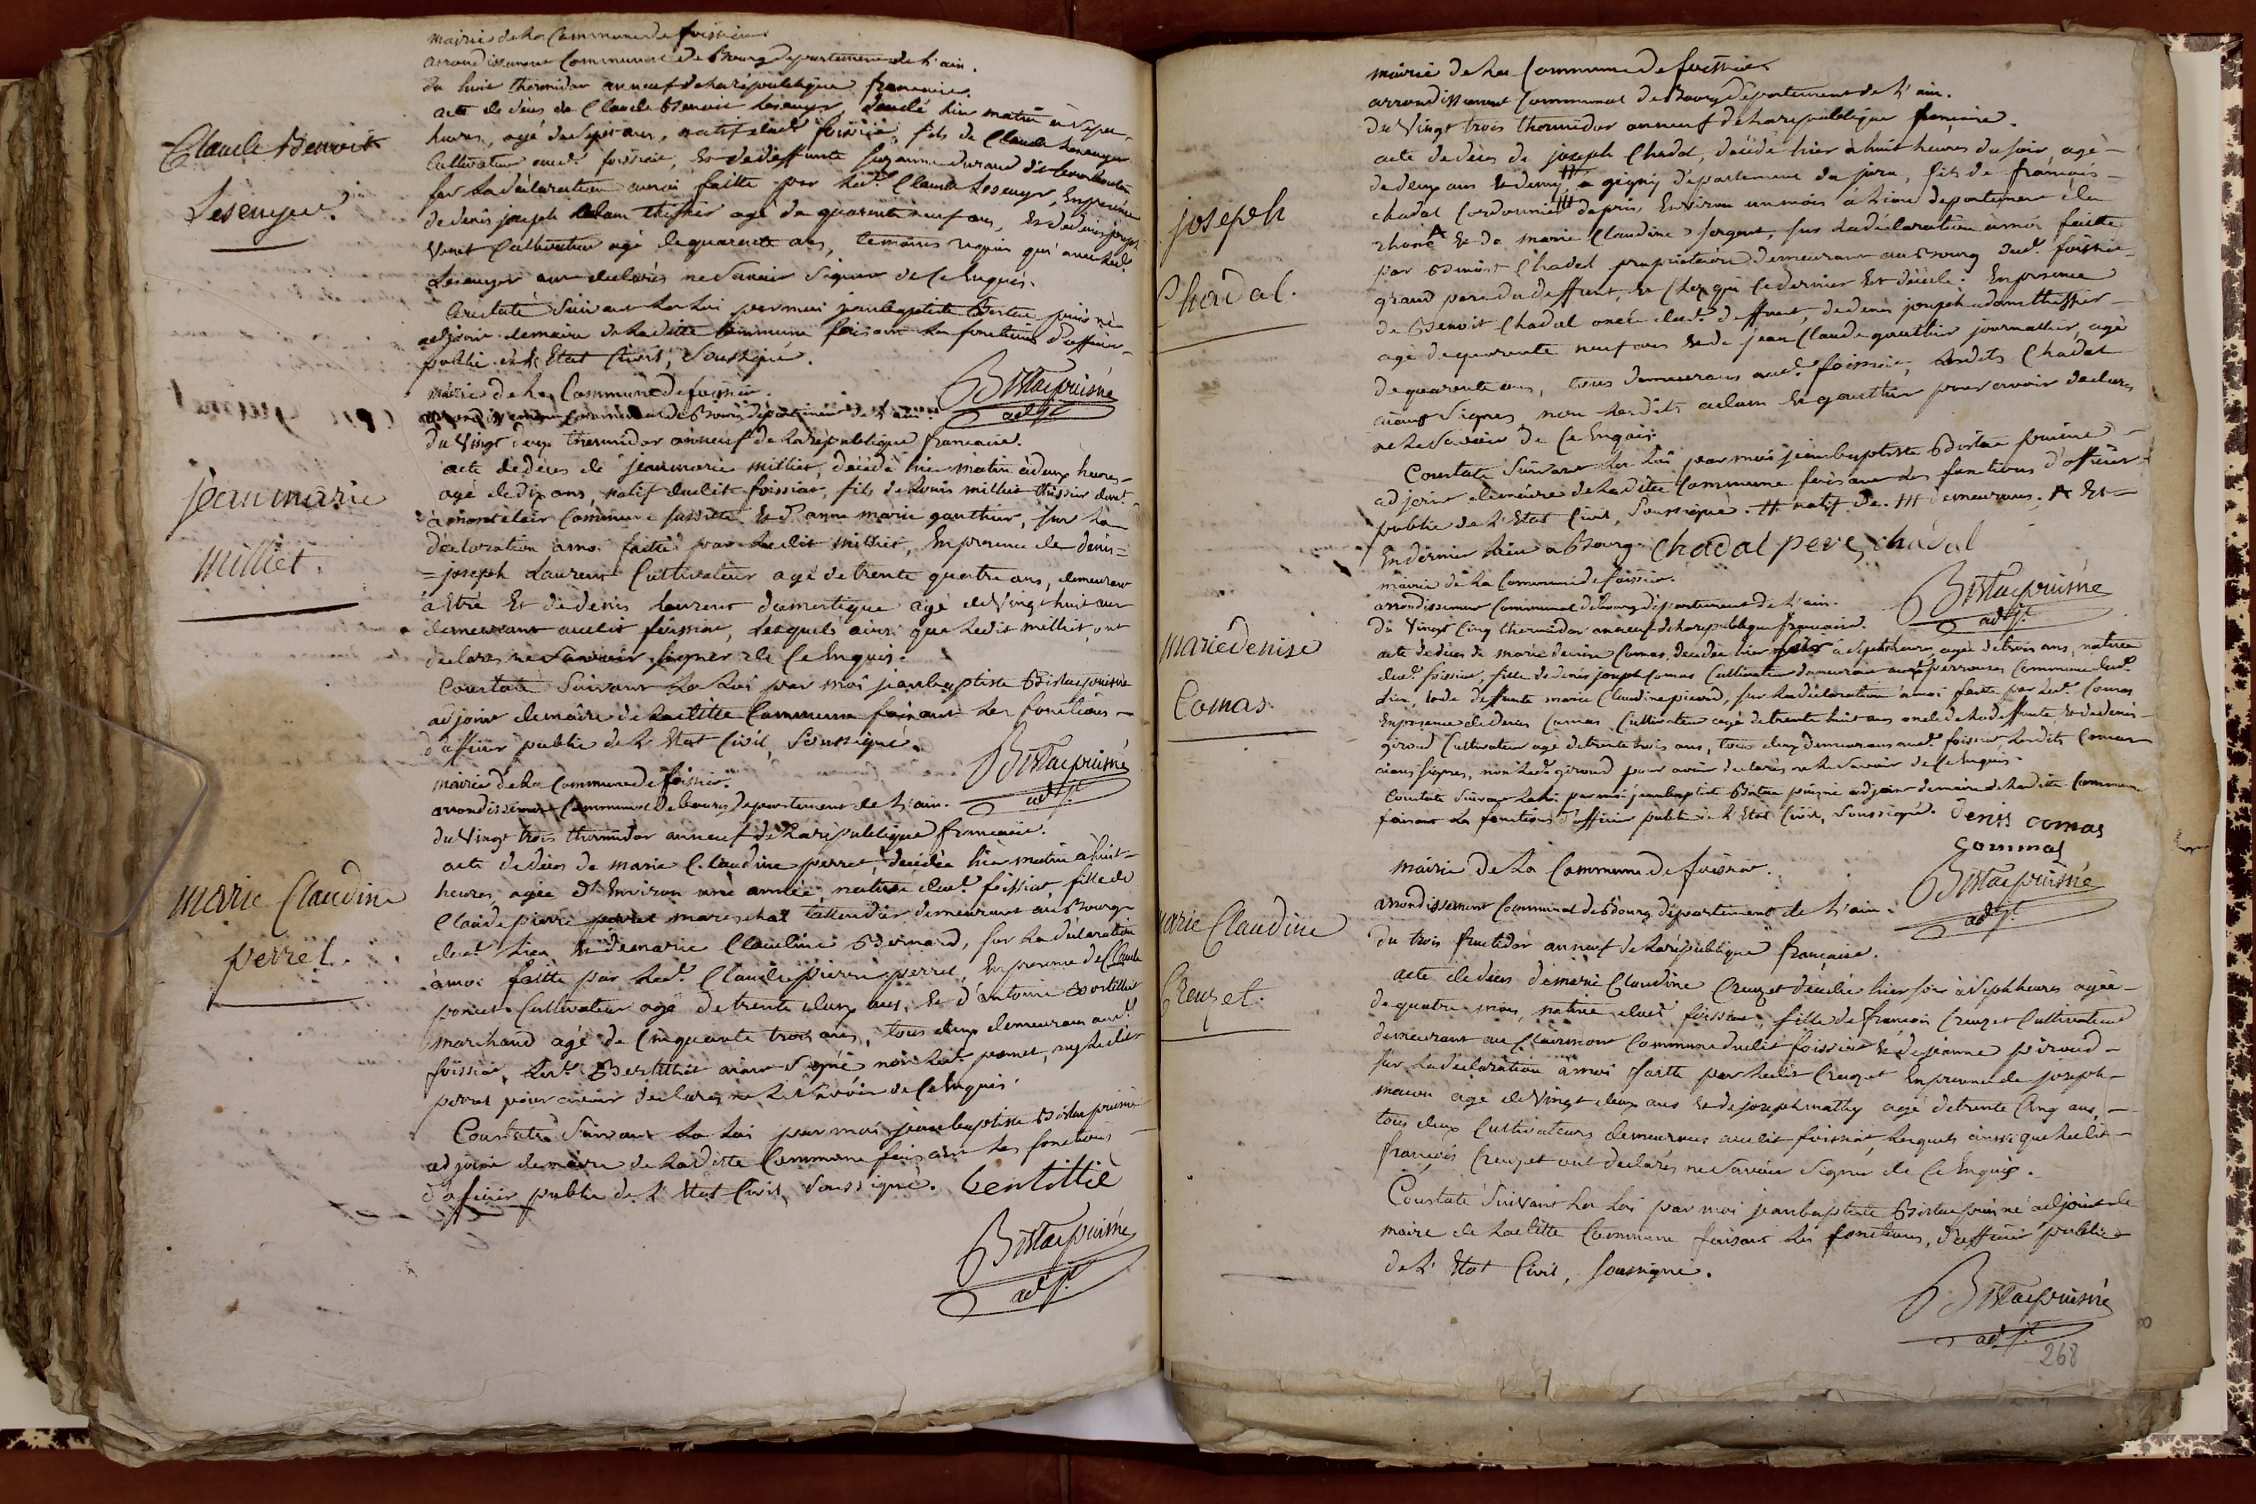 mairie de La Commune de foissiat
arrondissement Communal de Bourg departement de L'ain.
du huit thermidor an neuf de La republique francaise.
acte de déces de Claude Benoit Lesenyer, décédé hier matin à sept
heures, agé de sept ans, natif dud.t foissiat, fils de Claude Lesenyer
Cultivateur aud.t foissiat, Et de deffunte Suzanne durand
sur La déclaration à moi faitte par Led.t Claude Lesenyer, En presence
de denis joseph adam thissier agé de quarante neuf ans, Et de denis joseph
Vinit Cultivateur agé de quarante ans, temoins requis qui avec Led.t
Lesenyer ont declarés ne Savoir Signer de Ce Enquis.
Constaté Suivant La Loi par moi jeanbaptiste Bistac puisné
adjoint de maire de Laditte Commune faisant Les fonctions d'officier
public de L'Etat Civil, Soussigné.
Bistac puisné
adj.t
Claude Benoit
Lesenyer.
mairie de La Commune de foissiat.
arrondissement Communal de Bourg departement de L'ain.
du Vingt deux thermidor an neuf de La republique francaise.
acte de déces de jeanmarie milliet, décédé hier matin à deux heures
agé de dix ans, natif dudit foissiat, fils de Louis milliet thissier demt.
à montclair Commune susditte Et d'anne marie gauthier, sur La
déclaration à moi faitte par Ledit milliet, En presence de denis=
=joseph Laurent Cultivateur agé de trente quatre ans, demeurant
à Etré Et de denis Laurent domestique agé de Vingt huit ans
demeurant audit foissiat, Lesquels ainsi que Ledit milliet, ont
declarés ne Savoir Signer de Ce Enquis.
Constaté Suivant La Loi par moi jeanbaptiste Bistac puisné
adjoint de maire de Laditte Commune faisant Les fonctions
d'officier public de L'Etat Civil, Soussigné.
Bistac puisné
adj.t
jean marie
milliet.
mairie de La Commune de foissiat.
arrondissement Communal de bourg departement de L'ain.
du Vingt trois thermidor an neuf de La republique francaise.
acte de déces de marie Claudine perret, décédée hier matin à huit
heures, agée d'Environ une année, native dud.t foissiat, fille de
Claude pierre perret mareschal tallendier demeurant au Bourg
dud.t Lieu Et de marie Claudine Bernard, sur La declaration
à moi faitte par Led.t Claude pierre perret, En presence de Claude
poncet Cultivateur agé de trente deux ans, Et d'antoine Bertillet
marchand agé de Cinquante trois ans, tous deux demeurans aud.t
foissiat, Led.t Bertillet aiant Signé, non Led.t poncet, ny Ledit
perret pour avoir declarés ne Le Savoir de Ce Enquis.
Constaté Suivant La Loi par moi jeanbaptiste Bistac puisné
adjoint de maire de Laditte Commune faisant Les fonctions
d'officier public de L'Etat Civil, Soussigné. bertillié
Bistac puisné
adj.t
marie Claudine
perret.
mairie de La Commune de foissiat
arrondissement Communal de Bourg département de L'ain.
du Vingt trois thermidor an neuf de La republique francaise.
acte de déces de joseph Chadal, décédé hier à huit heures du soir, agé
de deux ans Et demy, # à gigny département du jura, fils de françois
chadal Cordonnier ## depuis Environ un mois à Lion departement du
rhone A Et de marie Claudine forgeat, sur La déclaration à moi faitte
par Benoist Chadal propriétaire demeurant au Bourg dud.t foissiat
grand pere du deffunt, Et Chez qui Ce dernier Est décédé. En presence
de Benoit Chadal oncle dud.t deffunt, de denis joseph adam thissier
agé de quarante neuf ans Et de jean Claude gauthier journallier, agé
de quarante ans, tous demeurans aud.t foissiat, Lesdits Chadal
aiant Signes, non Lesdits adam Et gauthier pour avoir declarés
ne Le Savoir de Ce Enquis.
Constaté Suivant La Loi par moi jeanbaptiste Bistac puisné
adjoint de maire de Laditte Commune faisant Les fonctions d'officier
public de L'Etat Civil, Soussigné. # natif de. ## demeurans. A Et
En dernier Lieu à Bourg. Chadal pere, chadal
Bistac puisné
adj.t
joseph
Chadal.
mairie de La Commune de foissiat.
arrondissement Communal de bourg département de L'ain.
du Vingt Cinq thermidor an neuf de La republique francaise.
acte de déces de marie denise Comas, decedée hier à sept heures, agée de trois ans, native
dud.t foissiat, fille de denis joseph Comas Cultivateur demeurant aux perrouses Commune dud.t
Lieu, Et de deffunte marie Claudine picard, sur La déclaration à moi faitte par Led.t Comas
En presence de denis Comas Cultivateur agé de trente huit ans oncle de La deffunte, Et de denis
giroud Cultivateur agé de trente trois ans, tous deux demeurans aud.t foissiat, Lesdits Comas
aians signes, non Led.t giroud pour avoir declarés ne Le Savoir de Ce Enquis.
Constaté Suivant La Loi par moi jeanbaptiste Bistac puisné adjoint de maire de Laditte Commune
faisant Les fonctions d'officier public de L'Etat Civil, Soussigné. denis comas
Commas
Bistac puisné
adj.t
marie denise
Comas.
mairie de La Commune de foissiat.
arrondissement Communal de Bourg département de L'ain.
du trois fructidor an neuf de La republique française.
acte de déces de marie Claudine Creuzet décédée hier soir à Sept heures agée
de quatre mois, native dud.t foissiat, fille de françois Creuzet Cultivateur
demeurant au Clairmont Commune dudit foissiat Et de jeanne piroud
sur La déclaration à moi faitte par Ledit Creuzet En presence de joseph
macon agé de Vingt deux ans Et de joseph mathy agé de trente Cinq ans,
tous deux Cultivateurs demeurans audit foissiat, Lesquels ainsi que Ledit
françois Creuzet ont declarés ne Savoir Signer de Ce Enquis.
Constaté Suivant La Loi par moi jeanbaptiste Bistac puisné adjoint de
maire de Laditte Commune faisant Les fonctions, d'officier public
de L'Etat Civil, Soussigné.
Bistac puisné
adj.t
marie Claudine
Creuzet.
268